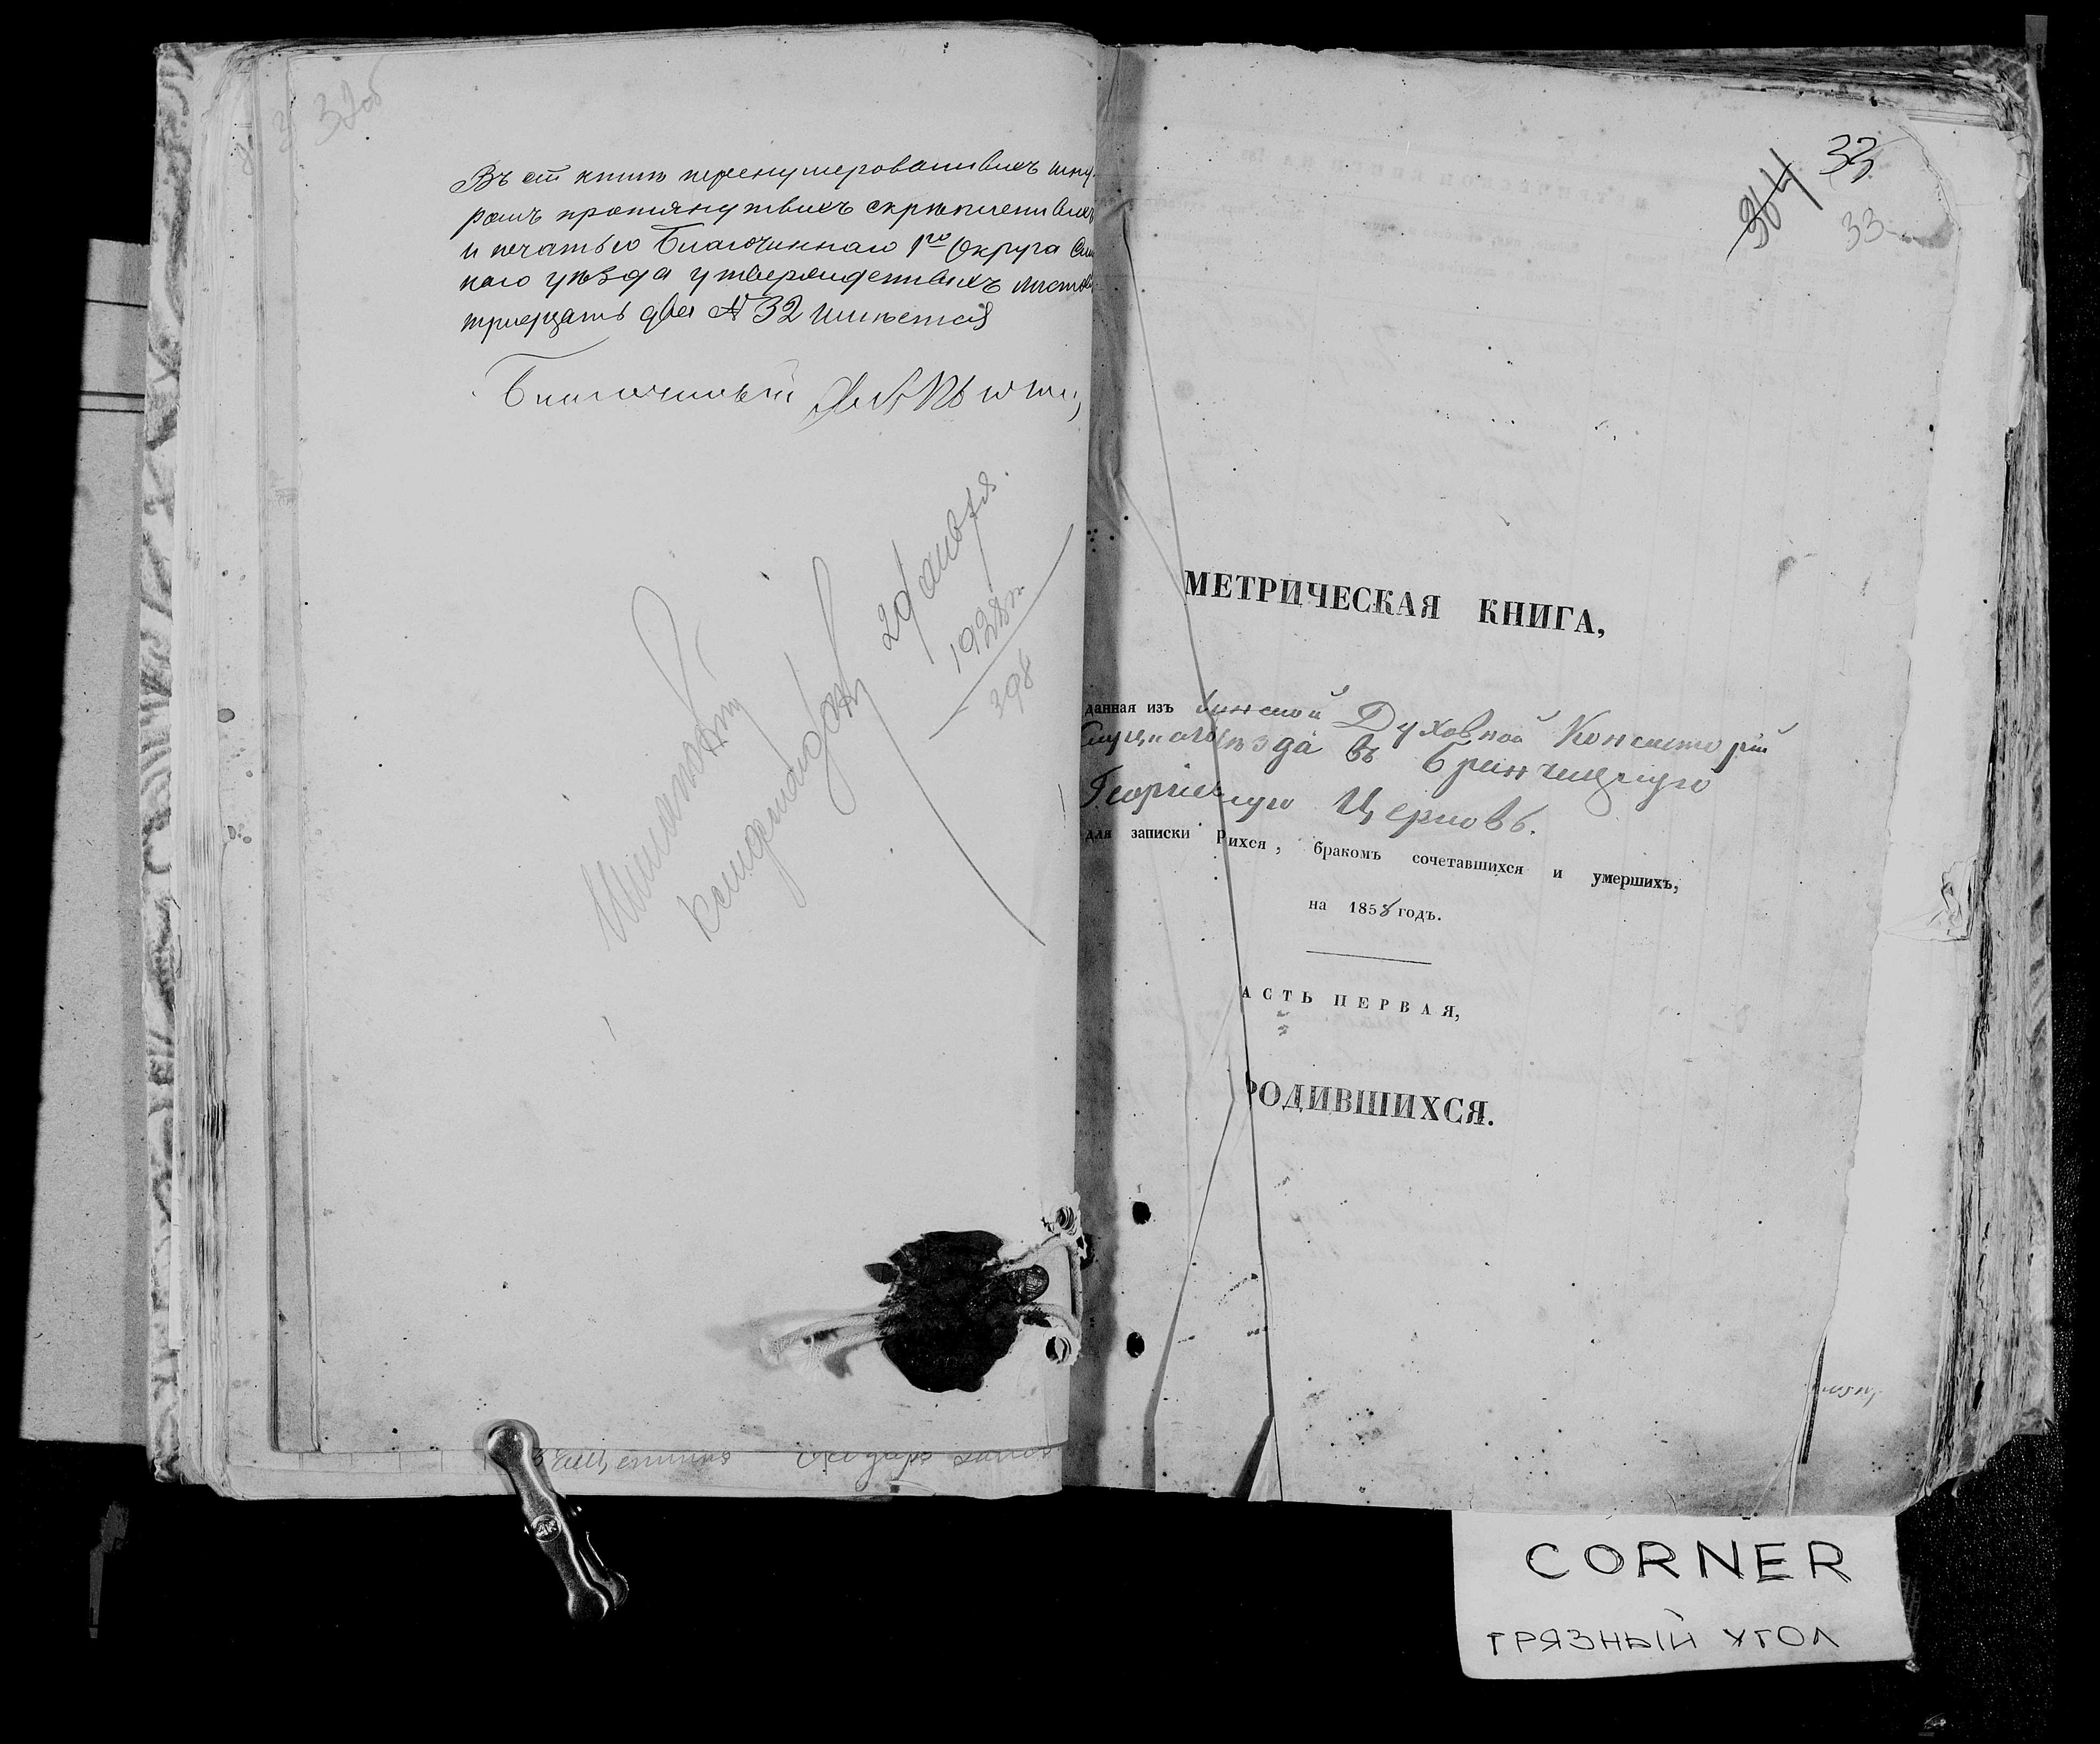 32об
Въ сей книги перенумерованныхъ шну-
ромъ протянутыхъ скрѣпленныхъ
и печатью Благочиннаго 1го Округа Слу
каго уѣзда утвержденныхъ листовъ
тридцать два № 32 имѣется
Благочинный
29 января
1928 г.
398
33
364
33
МЕТРИЧЕСКАЯ КНИГА,
данная изъ инской Духовной Консисторіи
Слуцкаго уѣзда въ Бранчицкую
Георгіевскую Церковь.
для записки р ихся, бракомъ сочетавшихся и умершихъ,
на 1858 годъ.
АСТЬ ПЕРВАЯ,
РОДИВШИХСЯ.
CORNER
ГРЯЗНЫЙ УГОЛ